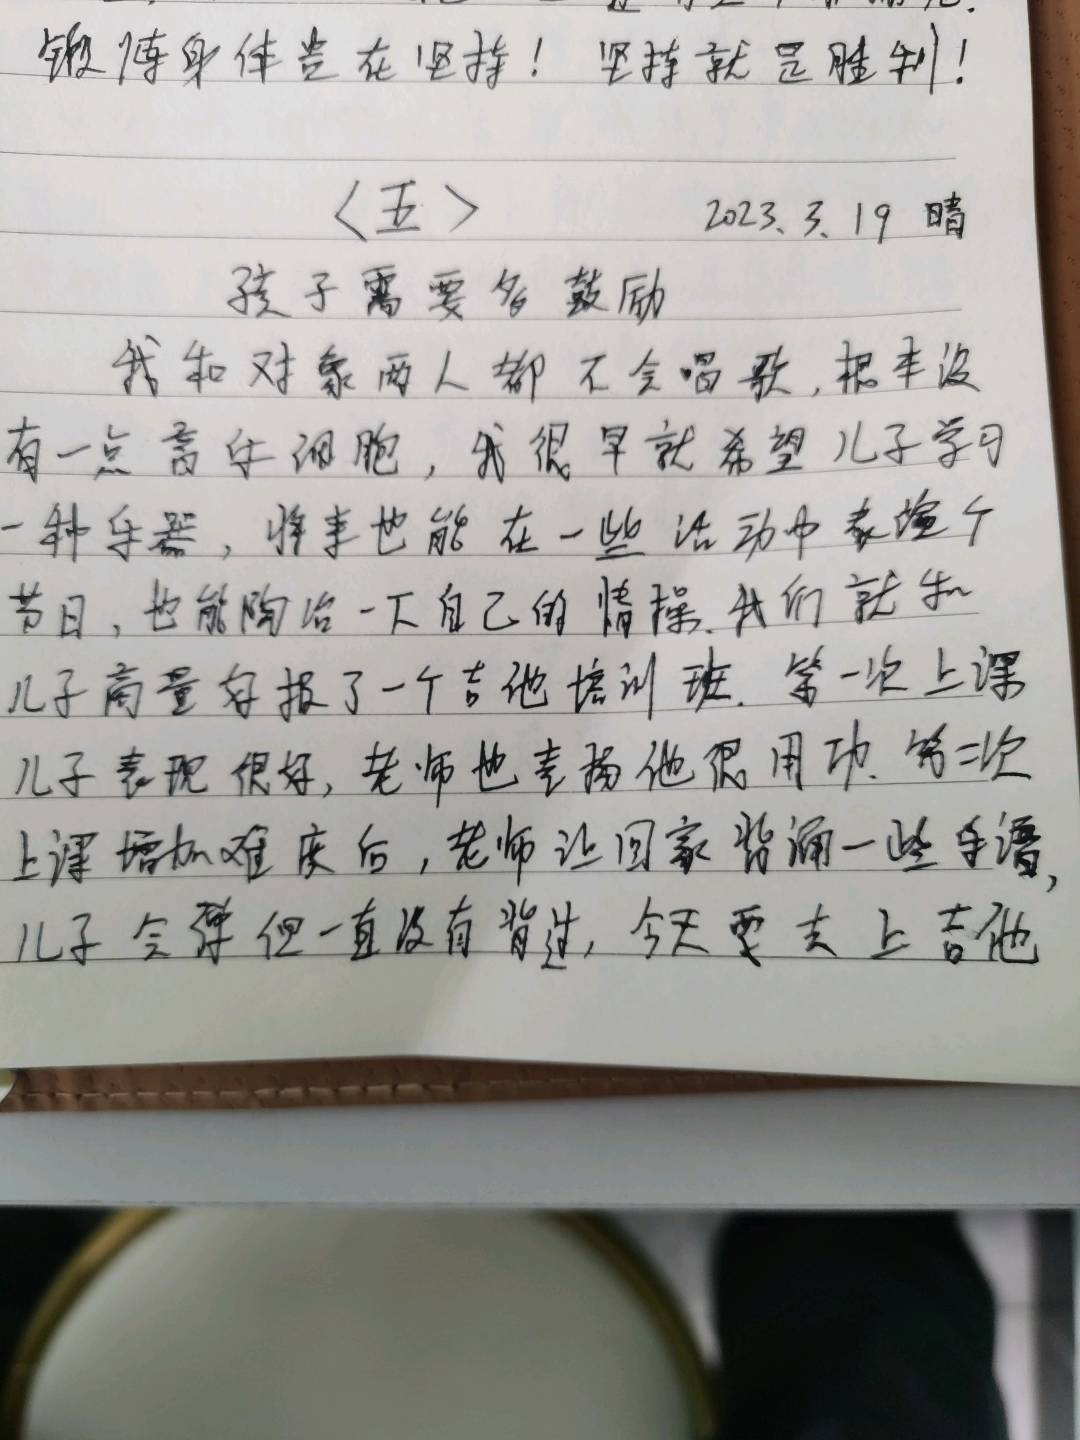 锻炼身体贵在坚持！ 坚持就是胜利！
〈五〉 2023.3.19 晴
孩子需要多鼓励
我和对象两人都不会唱歌，根本没
有一点音乐细胞，我很早就希望儿子学习
一种乐器，将来也能在一些活动中表演个
节目，也能陶冶一下自己的情操．我们就和
儿子商量好报了一个吉他培训班．第一次上课
儿子表现很好，老师也表扬他很用功．第二次
上课增加难度后，老师让回家背诵一些乐谱，
儿子会弹但一直没有背过，今天要去上吉他